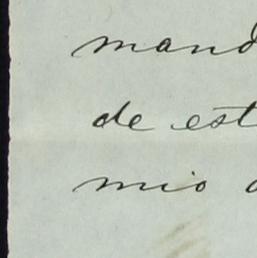 mand
de est
mio